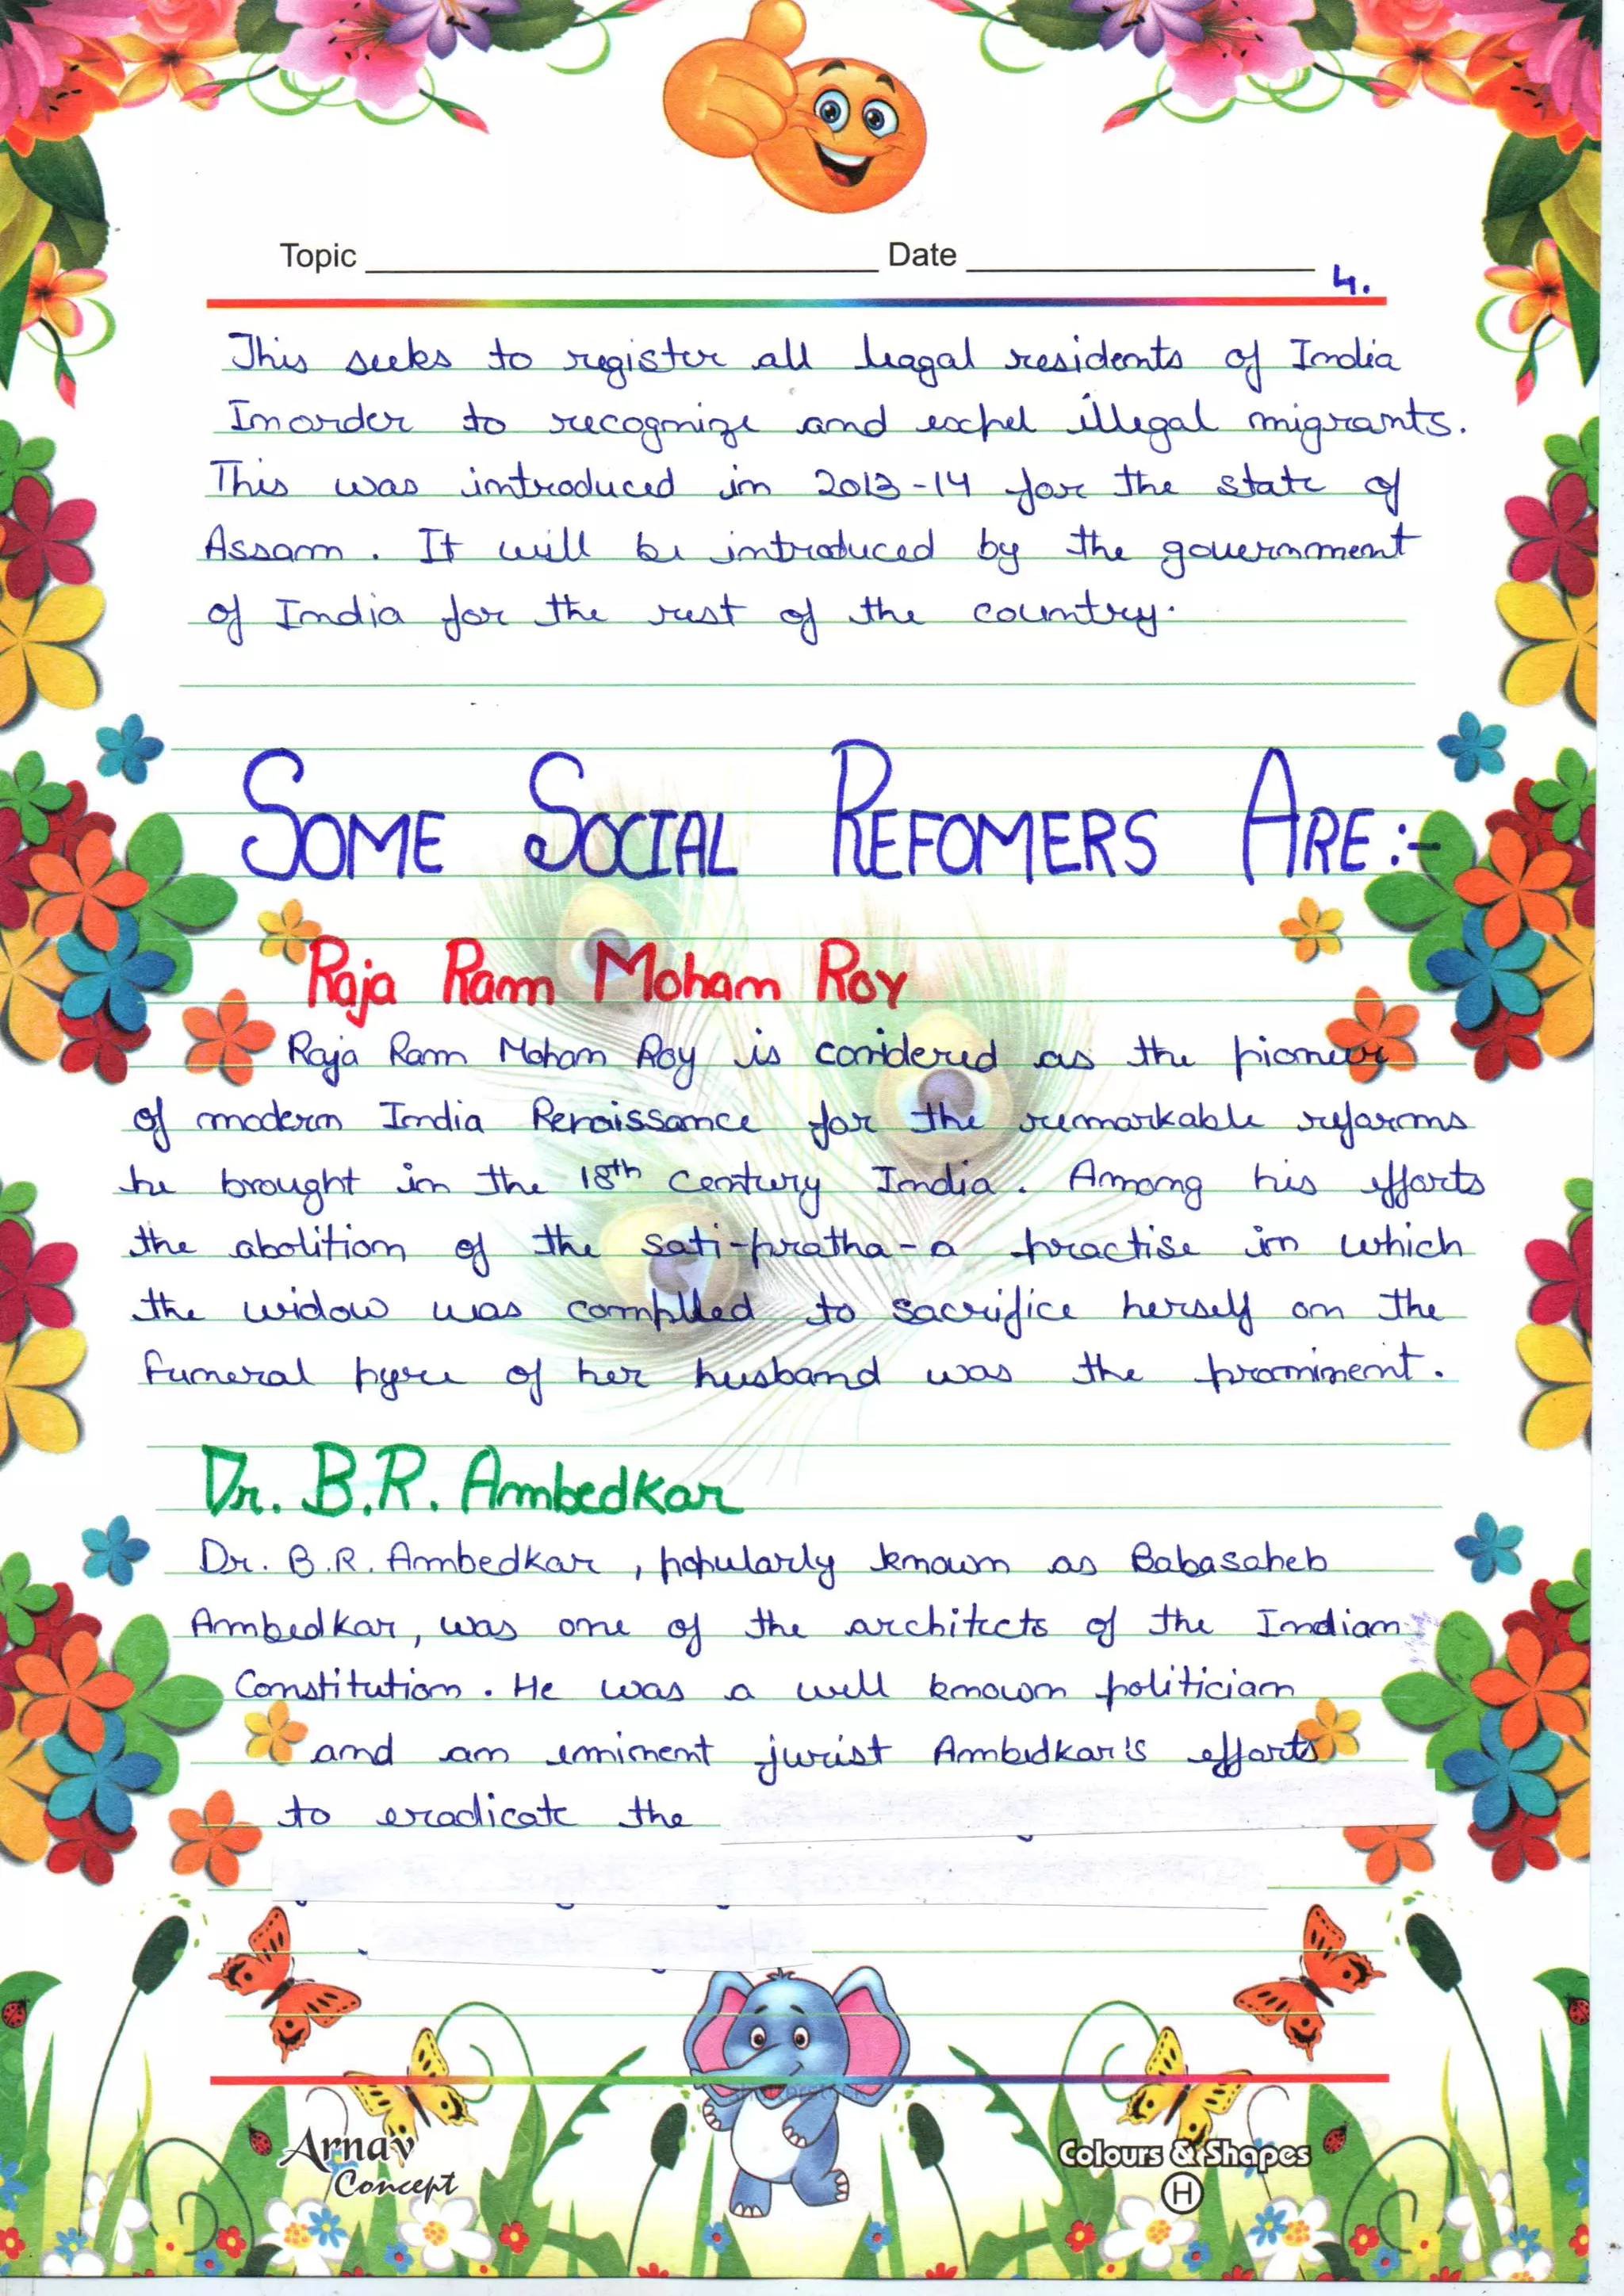 Topic Date
4.
This seeks to register all leagal residents of India
Inorder to recognize and expel illegal migrants.
This was introduced in 2013-14 for the state of
Assam. It will be introduced by the government
of India for the rest of the country.
SOME SOCIAL REFOMERS ARE:-
Raja Ram Mohan Roy
Raja Ram Mohan Roy is conidered as the pioneer
of modern India Renaissance for the remarkable reforms
he brought in the 18th century India. Among his efforts
the abolition of the sati-pratha-a practise in which
the widow was complled to sacrifice herself on the
funeral pyre of her husband was the prominent.
Dr. B.R. Ambedkar
Dr. B.R. Ambedkar, popularly known as Babasaheb
Ambedkar, was one of the architects of the Indian
Constitution. He was a well known politician
and an eminent jurist Ambedkar's efforts
to eradicate the
shutterstock
Arnav
Concept
Colours & Shapes
H